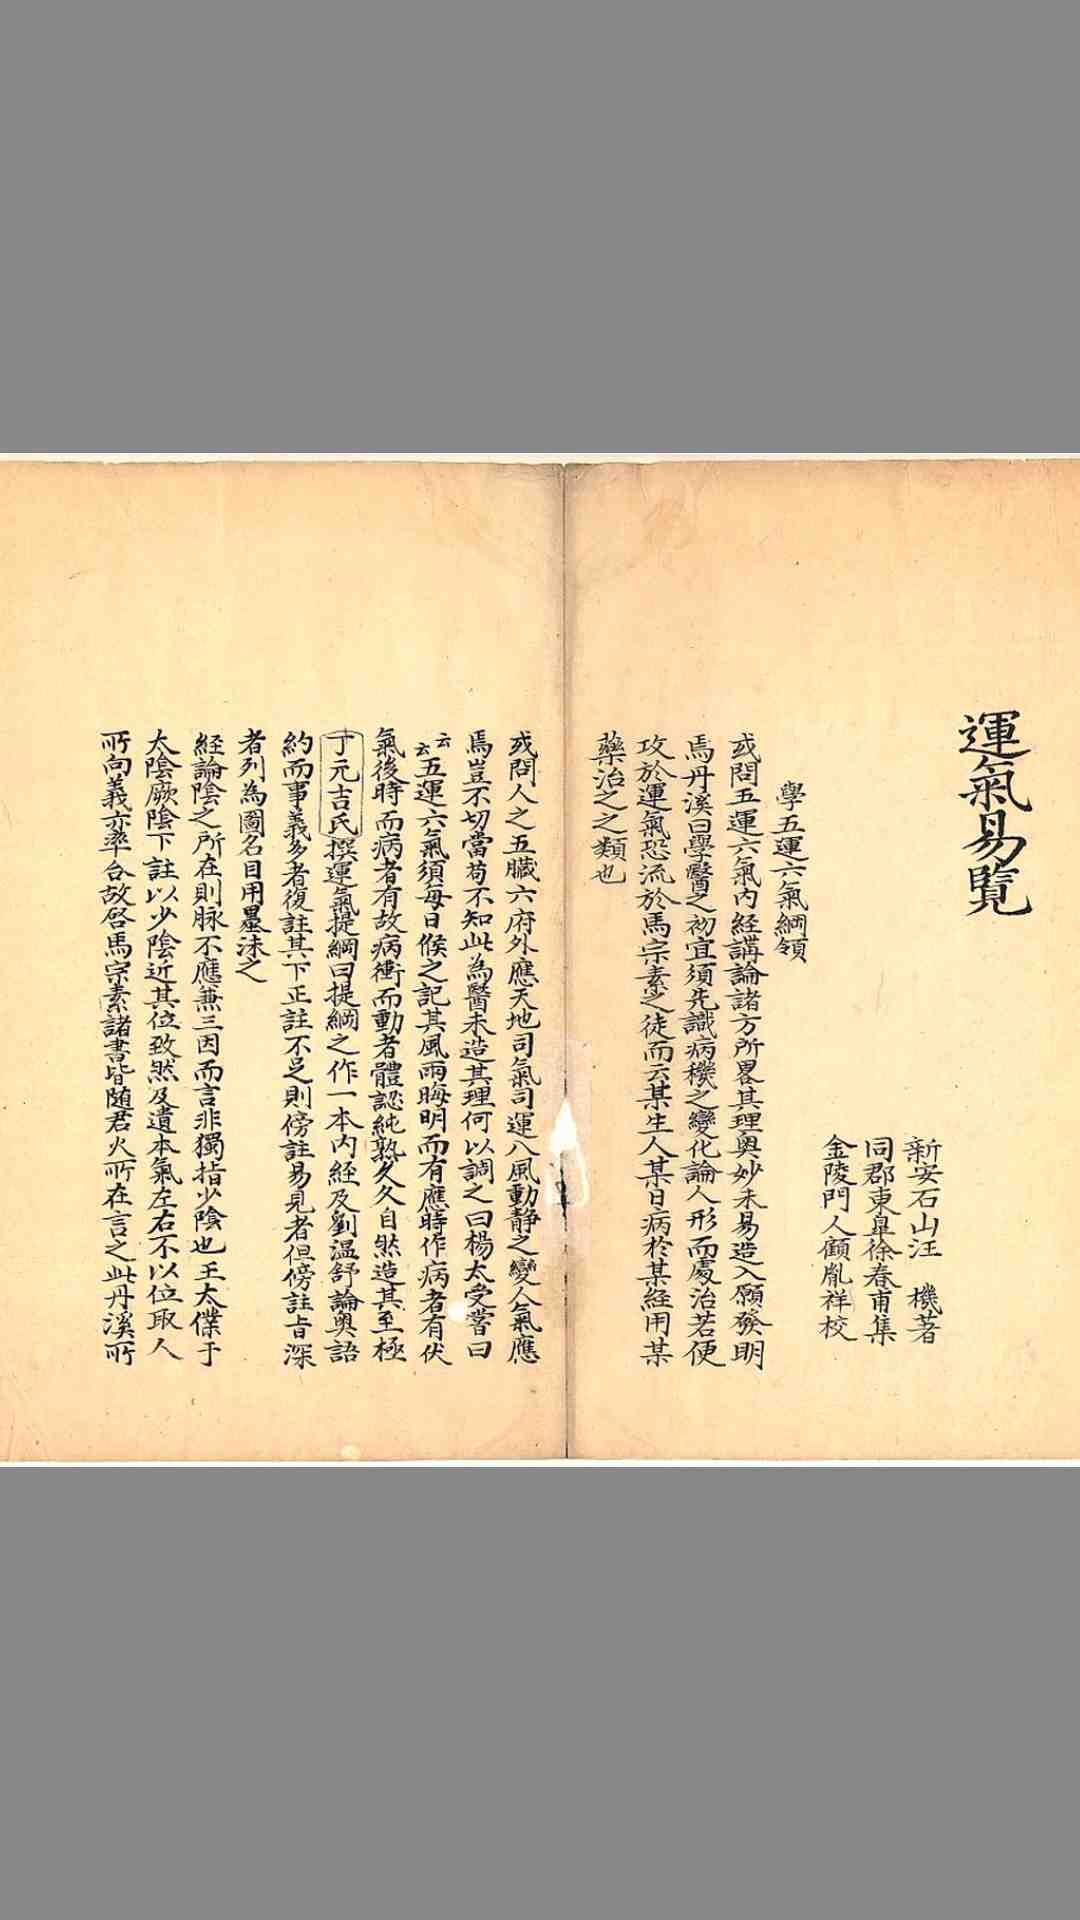 運氣易覽
新安石山汪　機著
同郡東臯徐春甫集
金陵門人顧胤祥校
學五運六氣綱領
或問五運六氣內経講論諸方所畧其理奧妙未易造入願發明
焉丹溪曰學醫之初宜須先識病機之變化論人形而處治若便
攻於運氣恐流於馬宗素之徒而云某生人某日病於某経用某
藥治之之類也
或問人之五臟六府外應天地司氣司運八風動静之變人氣應
焉豈不切當苟不知此為醫未造其理何以調之曰楊太受嘗曰
云云五運六氣須每日候之記其風雨晦明而有應時作病者有伏
氣後時而病者有故病衝而動者體認純熟久久自然造其至極
丁元吉氏撰運氣提綱曰提綱之作一本內経及劉温舒論奧語
約而事義多者復註其下正註不足則傍註易見者但傍註㫖深
者列為圖名目用墨沬之
経論陰之所在則脉不應兼三因而言非獨指少陰也王太僕于
太陰厥陰下註以少陰近其位致然及遺本氣左右不以位取人
所向義亦率合故啓馬宗素諸書皆随君火所在言之此丹溪所